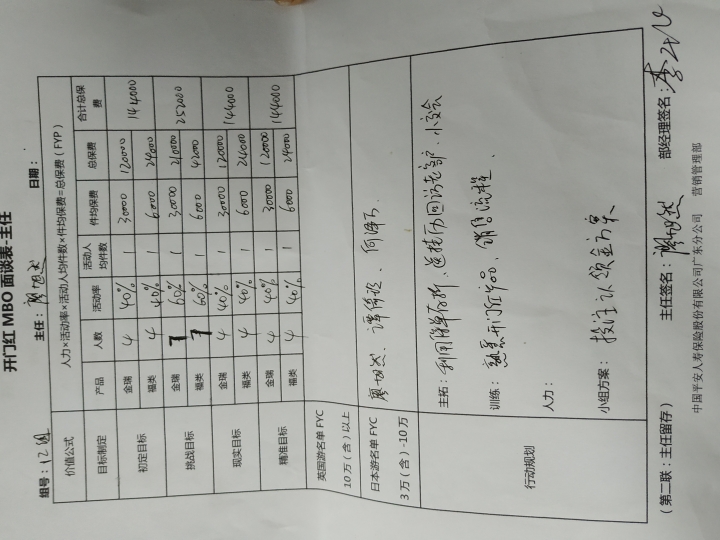 开门红 MBO 面谈表-主任
组号：12组 主任： 日期：
价值公式 人力×活动率×活动人均件数×件均保费=总保费（FYP）
目标制定 产品 人数 活动率 活动人均件数 件均保费 总保费 合计总保费
初定目标 金瑞 4 40% 1 30000 120000 144000
福类 4 40% 1 6000 24000
挑战目标 金瑞 7 60% 1 30000 210000 252000
福类 7 60% 1 6000 42000
现实目标 金瑞 4 40% 1 30000 120000 144000
福类 4 40% 1 6000 24000
精准目标 金瑞 4 40% 1 30000 120000 144000
福类 4 40% 1 6000 24000
英国游名单 FYC
10 万（含）以上
日本游名单 FYC
3 万（含）-10 万
行动规划
主拓：利用保单存折、连续历回访老客户、小交会
训练：熟悉开门红产品、销售流程、
人力：
小组方案： 投注认领金方案
（第二联：主任留存） 主任签名： 部经理签名：
中国平安人寿保险股份有限公司广东分公司 营销管理部